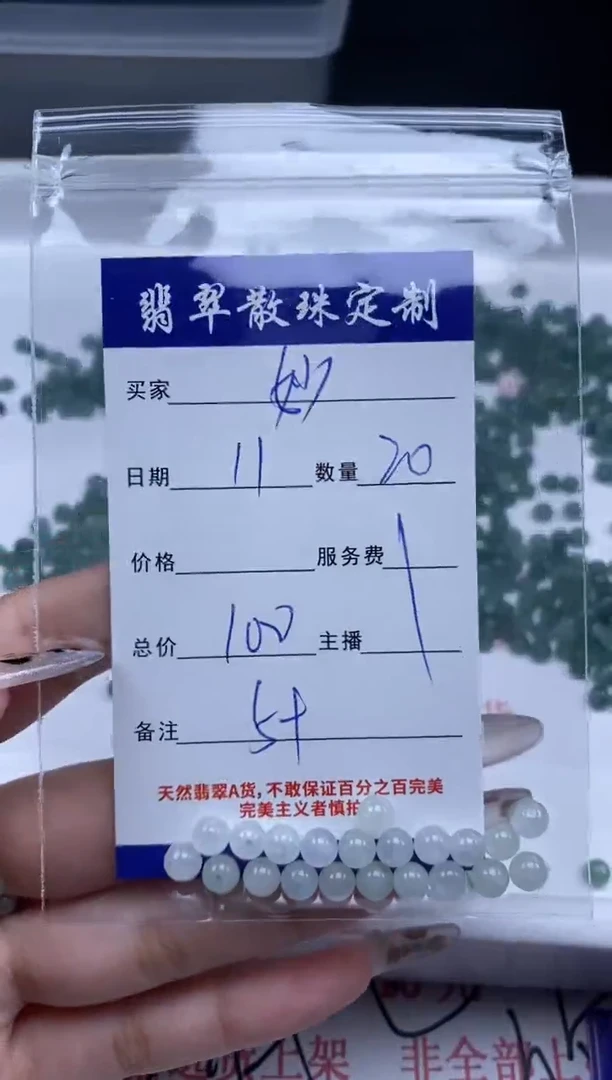 翡翠散珠定制
买家 妙
日期 11 数量 20
价格 服务费
总价 100 主播
备注 5+
天然翡翠A货,不敢保证百分之百完美
完美主义者慎拍
上架 非全部上